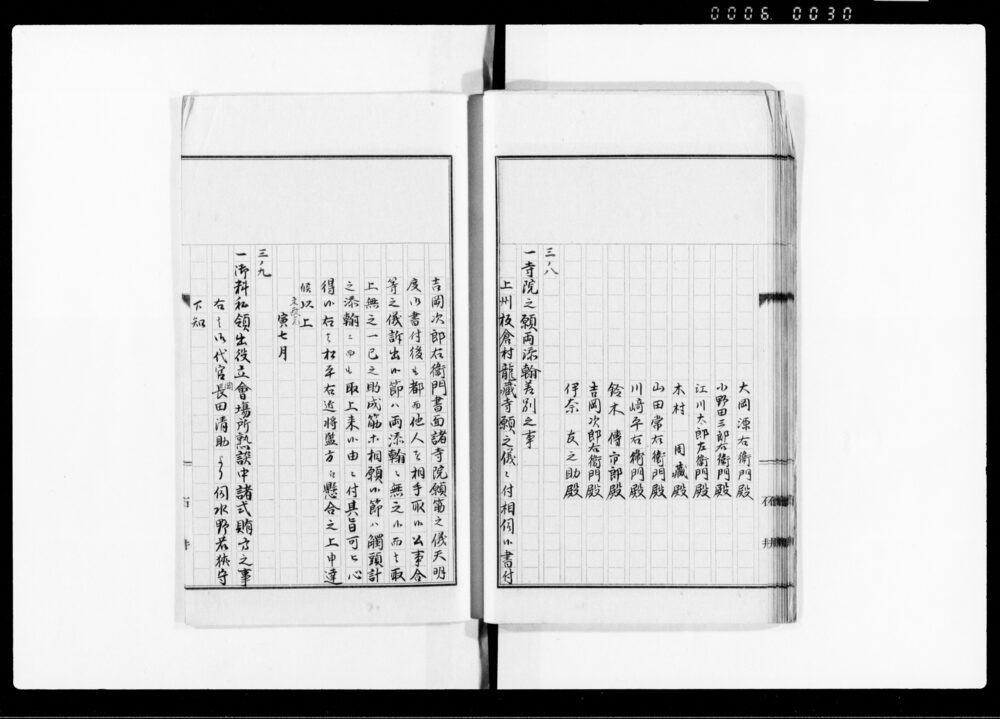 0006 0030
大岡源右衛門殿
小野田三郎右衛門殿
江川太郎左衛門殿
木村周蔵殿
山田常右衛門殿
川﨑平右衛門殿
鈴木傳市郎殿
吉岡次郎右衛門殿
伊奈友之助殿
三ノ八
一寺院之願両添翰差別之事
上州板倉村龍蔵寺願之儀ニ付相伺候書付
吉岡次郎右衛門書面諸寺院願筋之儀天明
度御書付後も都而他人を相手取候公事合
等之儀訴出候節ハ両添翰ニ無之候而は取
上無之一已之助成筋等相願候節ハ觸頭計
之添翰ニ而も取上来候由ニ付其旨可被心
得候右は松平右近将監方江懸合之上申達
候以上
寅七月
三ノ九
一御料私領出役立會場所熟談中諸式賄方之事
右は御代官長田清助より伺水野若狭守
下知